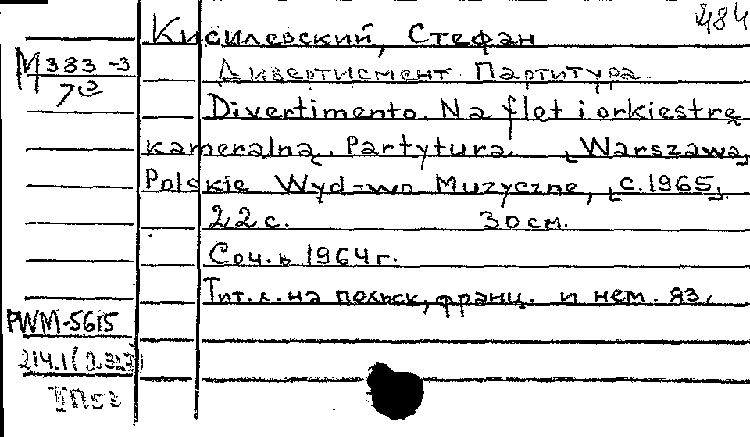 484
Кисилевский, Стефан
М 383-3
7
Дивертисмент. Партитура.
Divertimento. Na flet i orkiestrę
kameralną. Partytura. [Warszawa]
Polskie Wyd-wo Muzyczne, [c.1965]
22 с. 30 см.
Соч. в 1964 г.
Тит. л. на польск., франц. и нем. яз.
PWM-5615